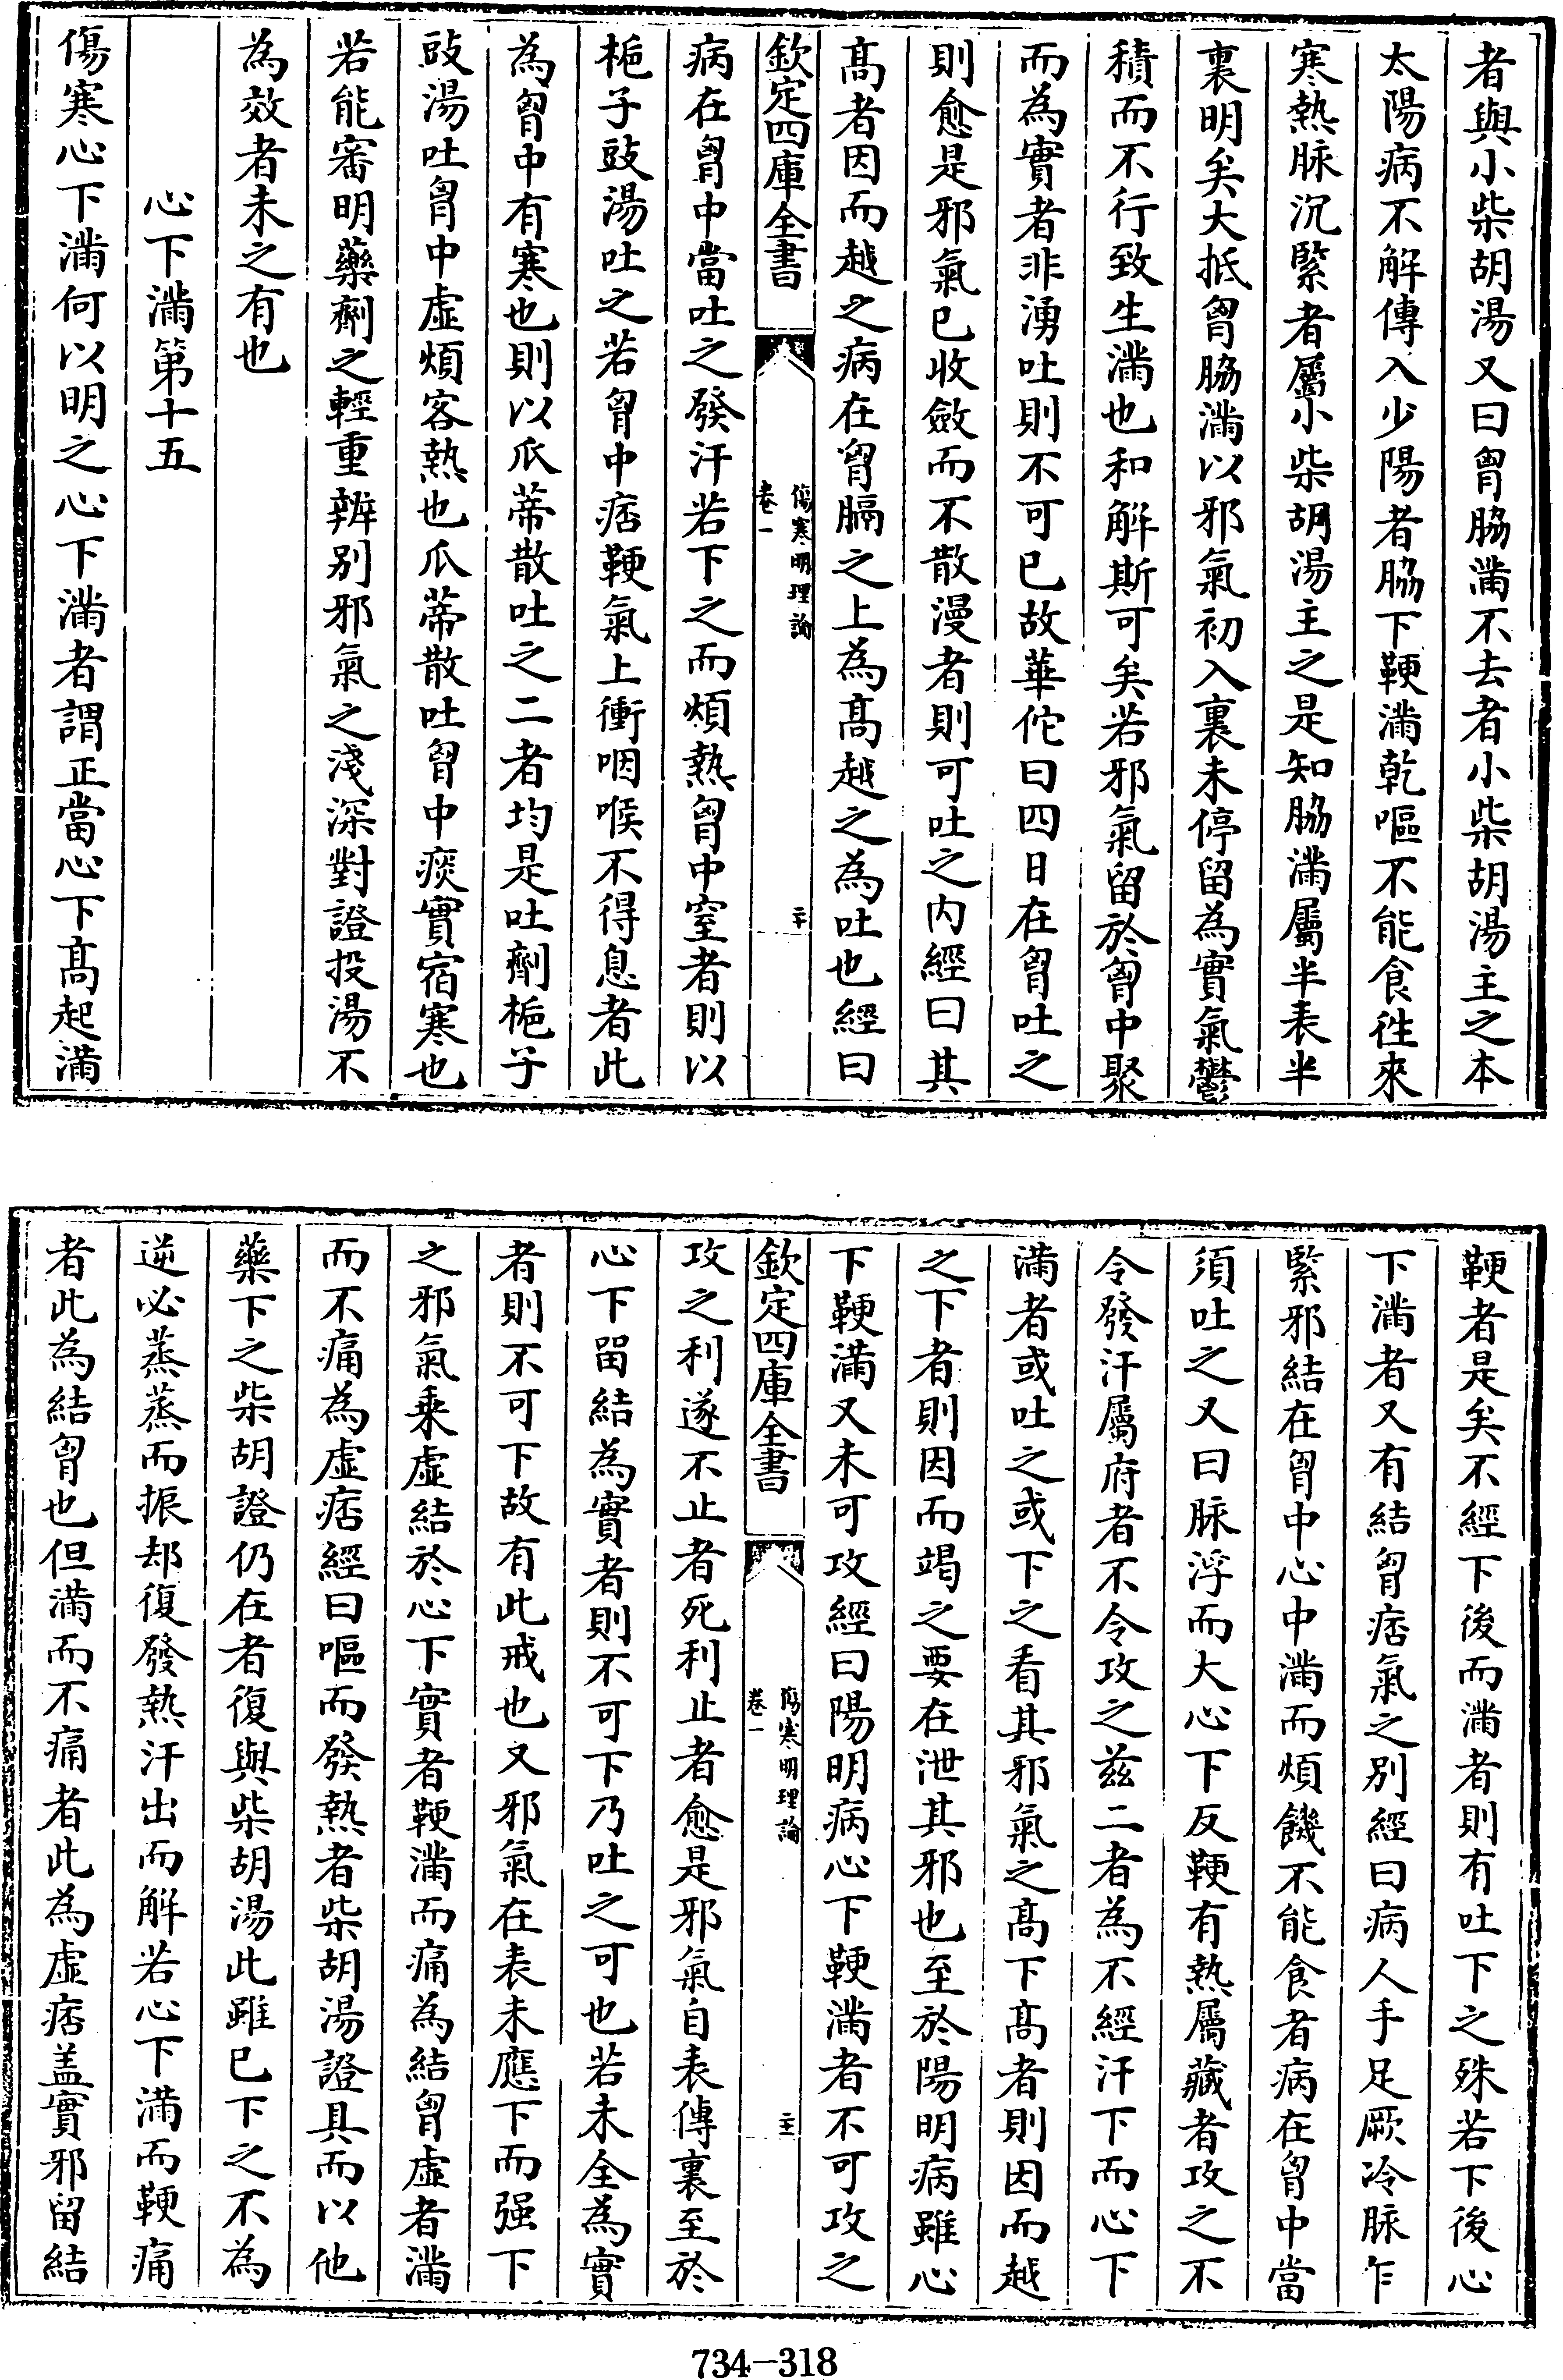 者與小柴胡湯又曰胷脇滿不去者小柴胡湯主之本
太陽病不解傳入少陽者脇下鞕滿乾嘔不能食徃來
寒熱脉沉緊者屬小柴胡湯主之是知脇滿屬半表半
裏明矣大抵胷脇滿以邪氣初入裏未停留為實氣鬱
積而不行致生滿也和解斯可矣若邪氣留於胷中聚
而為實者非湧吐則不可已故華佗曰四日在胷吐之
則愈是邪氣已收斂而不散漫者則可吐之内經曰其
髙者因而越之病在胷膈之上為髙越之為吐也經曰
欽定四庫全書
傷寒明理論
卷一
二十
病在胷中當吐之發汗若下之而煩熱胷中窒者則以
梔子豉湯吐之若胷中痞鞕氣上衝咽喉不得息者此
為胷中有寒也則以瓜蒂散吐之二者均是吐劑梔子
豉湯吐胷中虛煩客熱也瓜蒂散吐胷中痰實宿寒也
若能審明藥劑之輕重辨别邪氣之淺深對證投湯不
為效者未之有也
心下滿第十五
傷寒心下滿何以明之心下滿者謂正當心下髙起滿
鞕者是矣不經下後而滿者則有吐下之殊若下後心
下滿者又有結胷痞氣之别經曰病人手足厥冷脉乍
緊邪結在胷中心中滿而煩饑不能食者病在胷中當
須吐之又曰脉浮而大心下反鞕有熱屬藏者攻之不
令發汗屬府者不令攻之兹二者為不經汗下而心下
滿者或吐之或下之看其邪氣之髙下髙者則因而越
之下者則因而竭之要在泄其邪也至於陽明病雖心
下鞕滿又未可攻經曰陽明病心下鞕滿者不可攻之
欽定四庫全書
傷寒明理論
卷一
二十一
攻之利遂不止者死利止者愈是邪氣自表傳裏至於
心下留結為實者則不可下乃吐之可也若未全為實
者則不可下故有此戒也又邪氣在表未應下而强下
之邪氣乗虛結於心下實者鞕滿而痛為結胷虛者滿
而不痛為虛痞經曰嘔而發熱者柴胡湯證具而以他
藥下之柴胡證仍在者復與柴胡湯此雖已下之不為
逆必蒸蒸而振却復發熱汗出而解若心下滿而鞕痛
者此為結胷也但滿而不痛者此為虛痞盖實邪留結
734-318